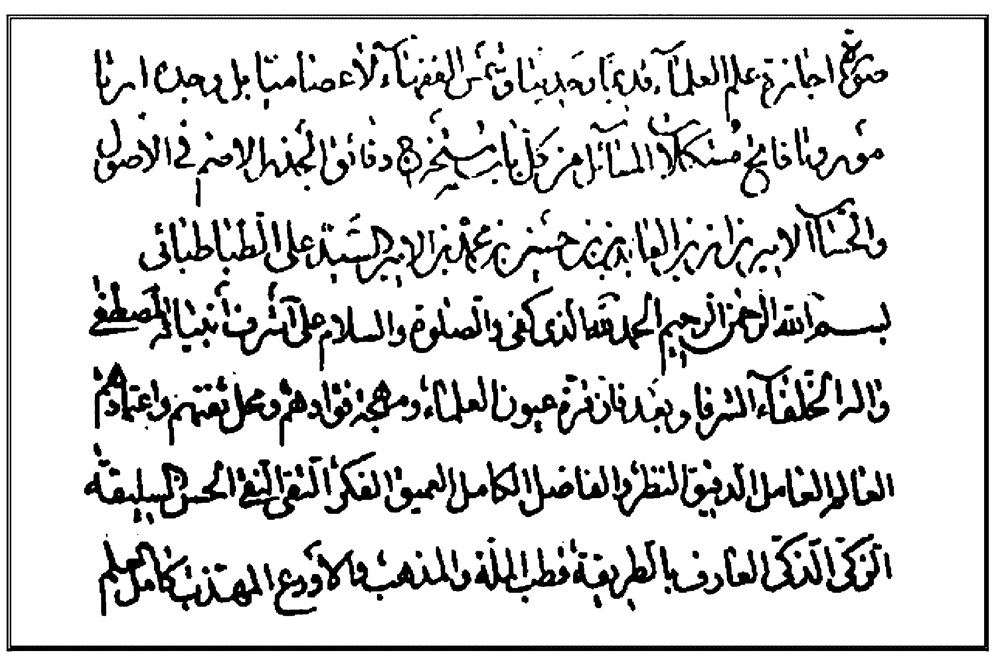 صورة اجازة علم العلماء قديما وحديثا وشمس الفقهاء الاعصا متيا بل وجدا امريا
فاتح مشكلات المسائل من كل باب مستخرج دقائق الجذر الاصم في الاصول
والحساب الامير زا زين العابدين بن حسين بن محمد بن الامير السيد على الطباطبائى
بسم الله الرحمن الرحيم الحمد لله الذى كفى والصلوة والسلام على اشرف انبيائه المصطفى
واله الخلفاء الشرفا وبعد فان قرة عيون العلماء ومهجة فوادهم ومحل ثقتهم واعتمادهم
العالم العامل الدقيق النظر والفاضل الكامل العميق الفكر التقى النقى الحسن السليقة
الزكى الذكى العارف بالطريقة قطب الملة والمذهب والاورع المهذب كامل العلم